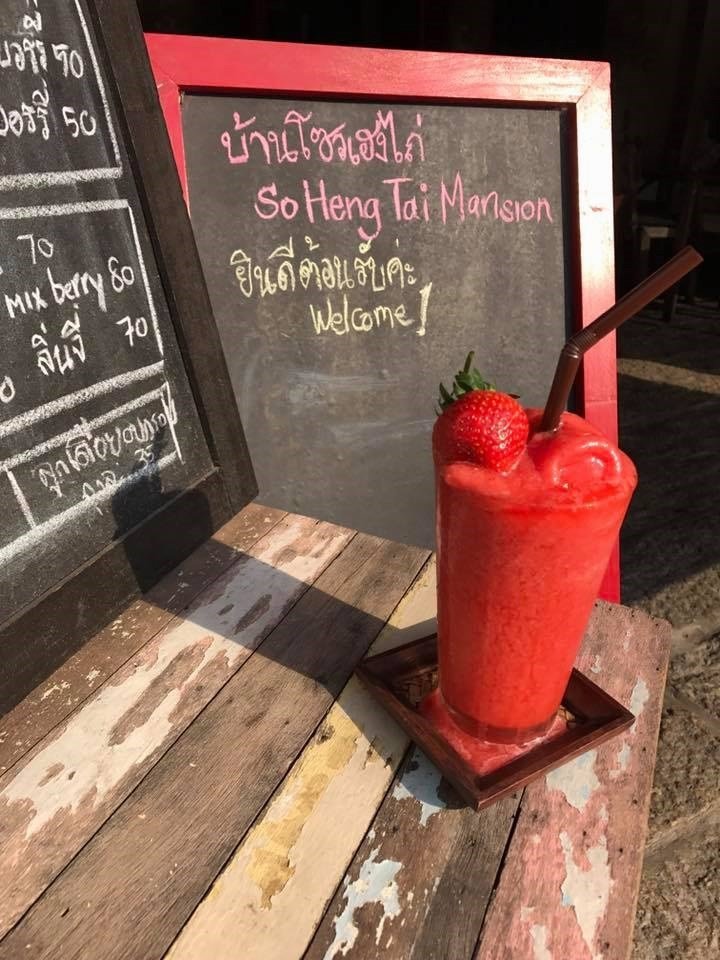 50
50
70
mix berry 80
ลิ้นจี่ 70
บ้านโซวเฮงไถ่
So Heng Tai Mansion
ยินดีต้อนรับค่ะ
Welcome!